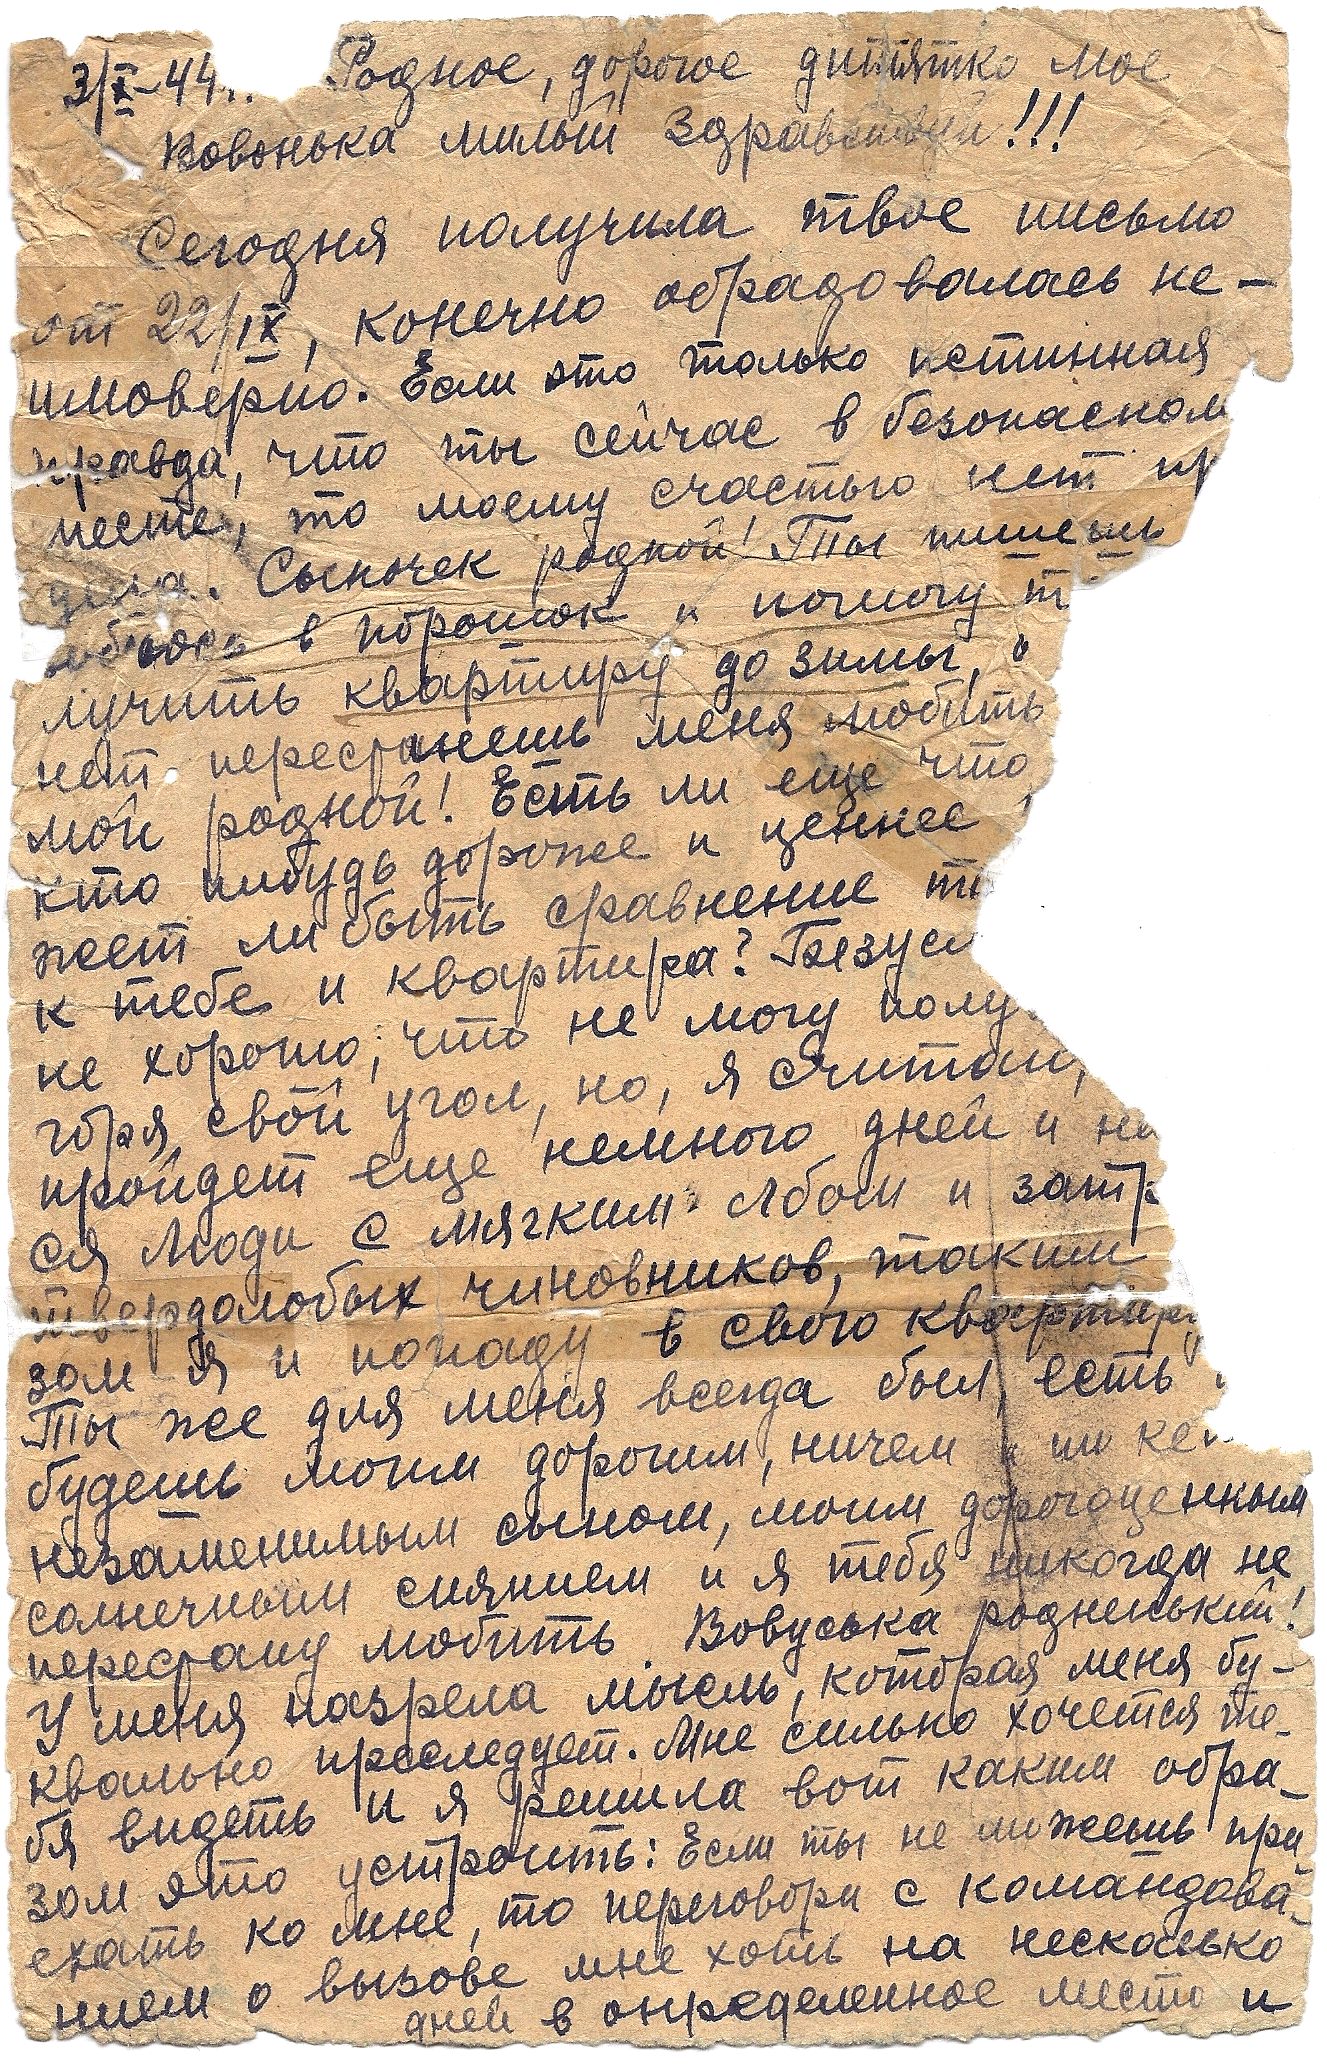 3/X-44г. Родное, дорогое дитятко мое
Вовонька милый здравствуй!!!
Сегодня получила твое письмо
от 22/IX, конечно обрадовалась не-
имоверно. Если это только истинная
правда, что ты сейчас в безопасном
месте, то моему счастью нет пр
дела. Сыночек родной! Ты пишешь
в порошок и помогу т
лучить квартиру до зимы,
нет перестанешь меня любить
мой родной! Есть ли еще что
кто нибудь дороже и ценнее
жет ли быть сравнение
к тебе и квартира? Безусл
не хорошо, что не могу полу
горя свой угол, но, я считаю,
пройдет еще немного дней и на
ся люди с мягким лбом и затр
твердолобых чиновников, таким
зом я и попаду в свою квартиру
Ты же для меня всегда был, есть
будешь моим дорогим, ничем и ни кем
незаменимым сыном, моим дорогоценным
солнечным сиянием и я тебя никогда не
перестану любить Вовуська родненький!
У меня назрела мысль, которая меня бу-
квально преследует. Мне сильно хочется те-
бя видеть и я решила вот каким обра-
зом это устроить: Если ты не можешь при
ехать ко мне, то переговори с командова-
нием о вызове мне хоть на несколько
дней в определенное место и